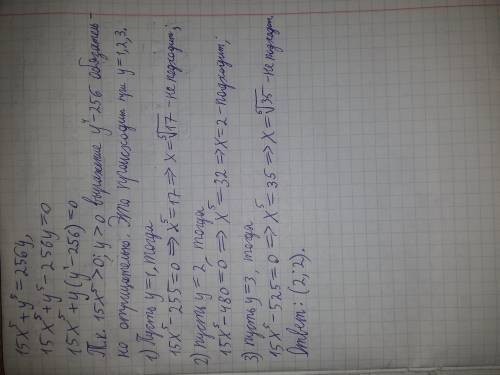 15x⁵ + y⁵ = 256y,
15x⁵ + y⁵ - 256y = 0
15x⁵ + y(y⁴ - 256) = 0
Т.к. 15x⁵ > 0; y > 0 выражение y⁴ - 256 обязатель-
но отрицательно. Это происходит при y = 1, 2, 3.
1) Пусть y = 1, тогда
15x⁵ - 255 = 0 => x⁵ = 17 => x = ⁵√17 - не подходит;
2) пусть y = 2, тогда
15x⁵ - 480 = 0 => x⁵ = 32 => x = 2 - подходит;
3) пусть y = 3, тогда
15x⁵ - 525 = 0 => x⁵ = 35 => x = ⁵√35 - не подходит.
Ответ: (2; 2).